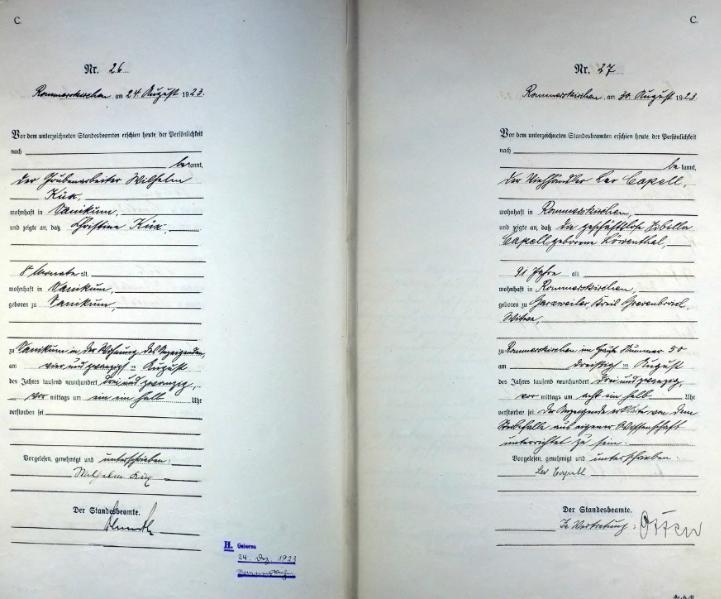 C.
Nr. 26
Rommerskirchen am 24. August 1923.
Vor dem unterzeichneten Standesbeamten erschien heute der Persönlichkeit
nach
be kannt,
der Grubenarbeiter Wilhelm
Küx,
wohnhaft in Vanikum,
und zeigte an, daß Christine Küx,
8 Monate alt
wohnhaft in Vanikum,
geboren zu Vanikum,
zu Vanikum in der Wohnung des Anzeigenden,
am vier und zwanzigsten August
des Jahres tausend neunhundert drei und zwanzig,
vor mittags um ein ein halb Uhr
verstorben sei.
Vorgelesen, genehmigt und unterschrieben:
Wilhelm Küx
Der Standesbeamte.
H. Geboren
24. Dez. 1922
C.
Nr. 27
Rommerskirchen, am 30. August 1923
Vor dem unterzeichneten Standesbeamten erschien heute der Persönlichkeit
nach
be kannt,
der Viehhändler Leo Capell,
wohnhaft in Rommerskirchen,
und zeigte an, daß die geschäftslose Sibella
Capell geborene Löwenthal,
91 Jahre alt
wohnhaft in Rommerskirchen,
geboren zu Garzweiler, Kreis Grevenbroich,
Witwe,
zu Rommerskirchen im Hause Nummer 50
am dreißigsten August
des Jahres tausend neunhundert drei und zwanzig,
vor mittags um acht ein halb Uhr
verstorben sei. Der Anzeigende erklärte von dem
Sterbefalle aus eigener Wissenschaft
unterrichtet zu sein.
Vorgelesen, genehmigt und unterschrieben:
Leo Capell
Der Standesbeamte.
In Vertretung: Otten